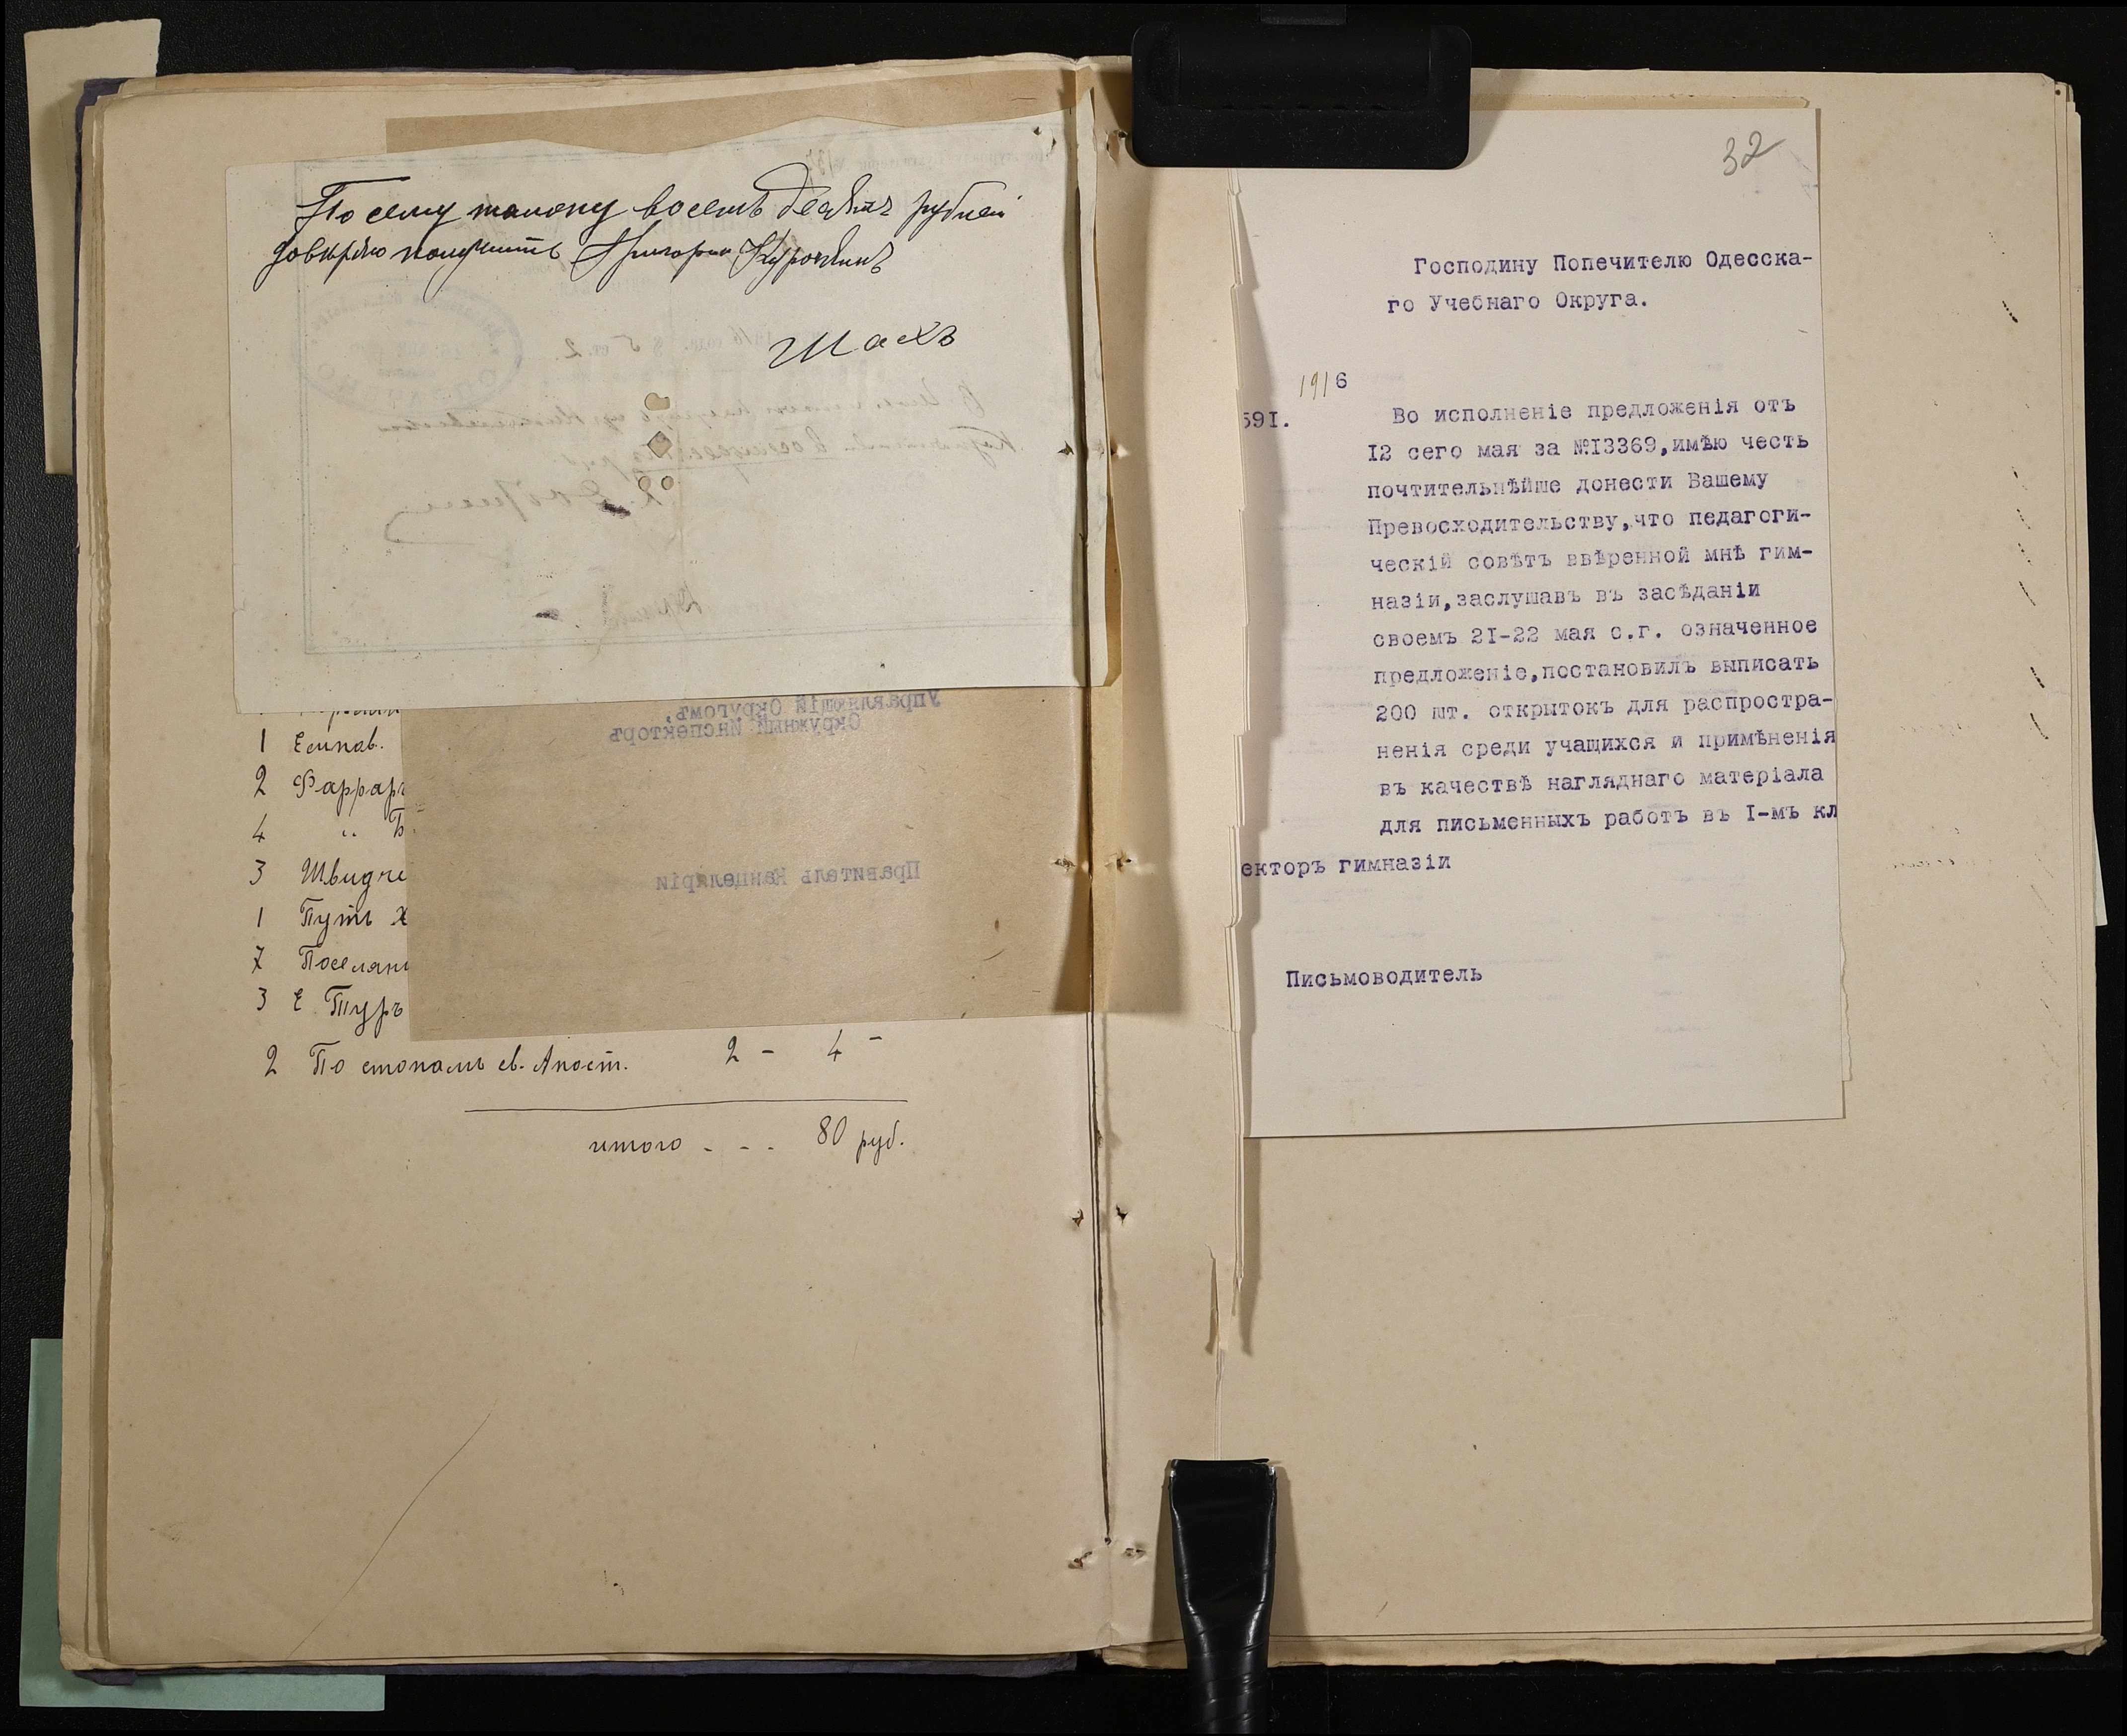 По сему талону восемь десять рублей
доверяю получить Григорию Курочкинъ
Шахъ
Управляющій Округомъ,
Окружный Инспекторъ
Правитель Канцеляріи
1 Еснпов.
2 Фарраръ
4 „ Б.
3 Швидче
1 Путь Х
7 Поселян
3 Е Туръ
2 По стопамъ св. Апост. 2 - 4 -
итого - - - 80 руб.
32
Господину Попечителю Одесска-
го Учебнаго Округа.
1916
591.
Во исполненіе предложенія отъ
12 сего мая за №13369, имѣю честь
почтительнѣйше донести Вашему
Превосходительству, что педагоги-
ческій совѣтъ ввѣренной мнѣ гим-
назіи, заслушавъ въ засѣданіи
своемъ 21-22 мая с.г. означенное
предложеніе, постановилъ выписать
200 шт. открытокъ для распростра-
ненія среди учащихся и примѣненія
въ качествѣ нагляднаго матеріала
для письменныхъ работъ въ I-мъ кл
екторъ гимназіи
Письмоводитель